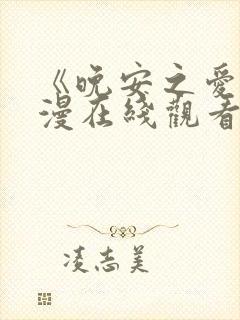 《晚安之愛
漫在綫觀看
凌志美